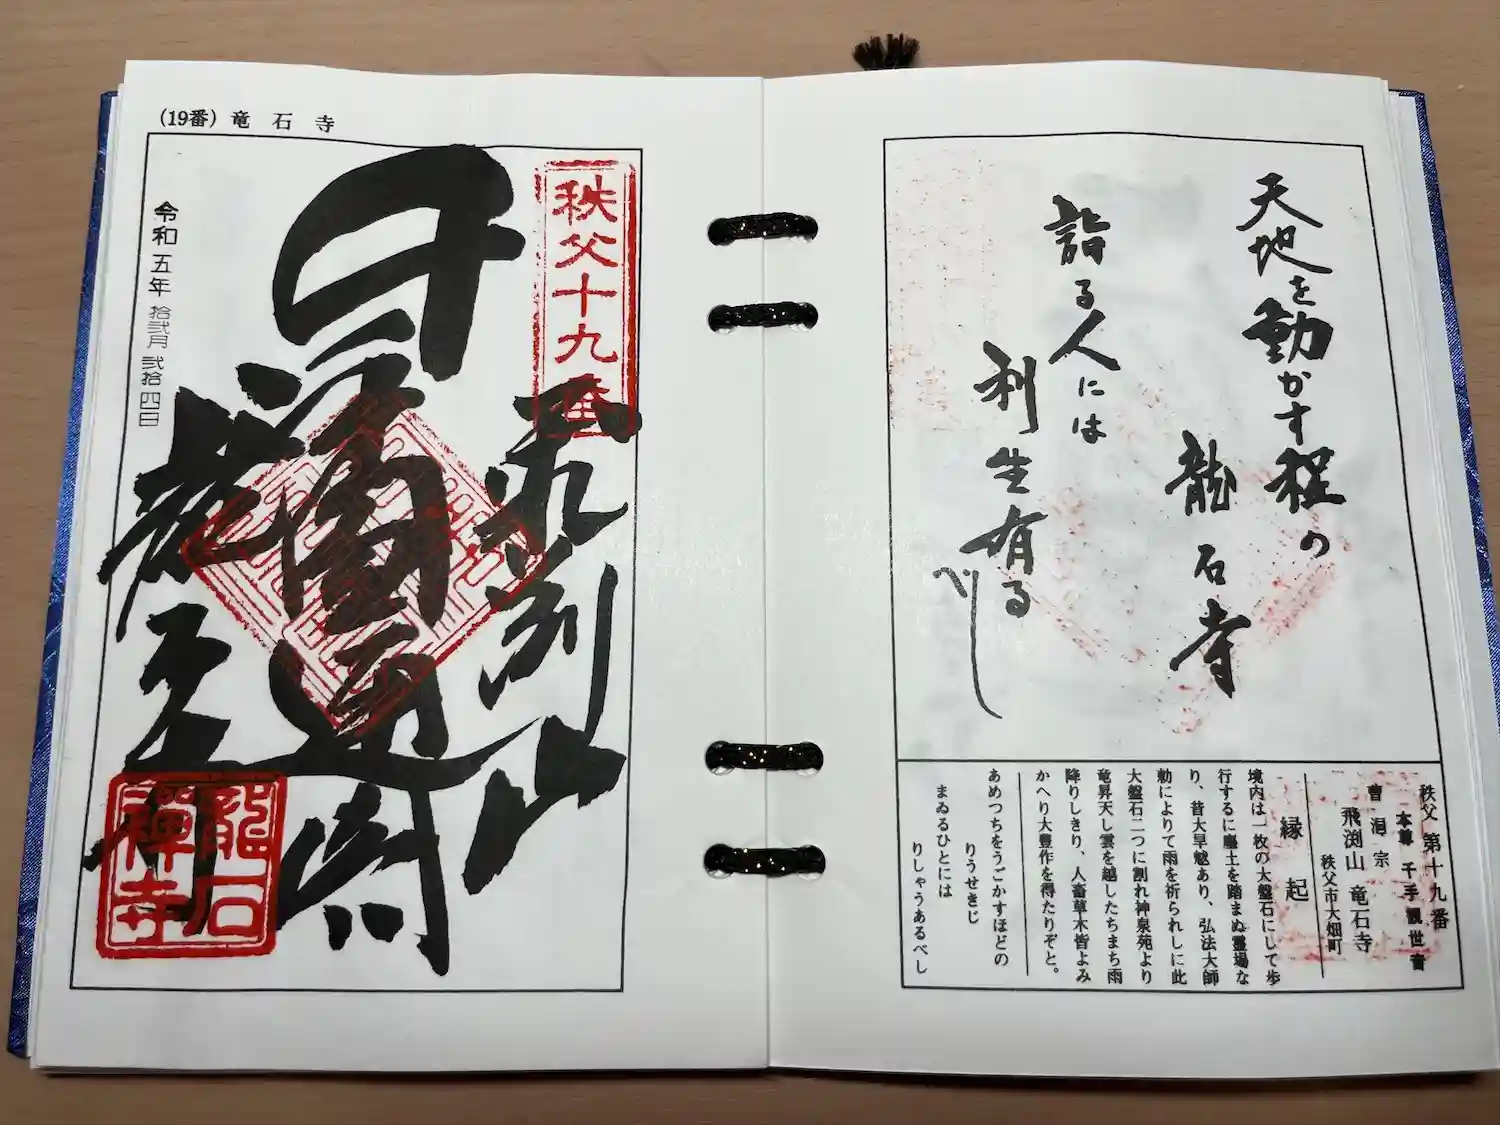 (19番) 竜石寺
秩父十九番
令和五年拾弐月弐拾四日
龍石
禅寺
天地を動かす程の
龍石寺
詣る人には
利生有る
べし
秩父 第十九番
本尊 千手観世音
曹洞宗
飛渕山 竜石寺
秩父市大畑町
縁起
境内は一枚の大盤石にして歩
行するに塵土を踏まぬ霊場な
り、昔大旱魃あり、弘法大師
勅によりて雨を祈られしに此
大盤石二つに割れ神泉苑より
竜昇天し雲を越したちまち雨
降りしきり、人畜草木皆よみ
かへり大豊作を得たりぞと。
あめつちをうごかすほどの
りうせきじ
まゐるひとには
りしゃうあるべし